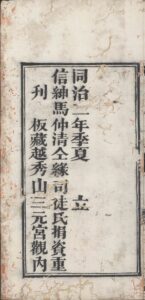 同治二年季夏　立
信紳馬仲清仝緣司徒氏捐資重
刊　板藏越秀山三元宮觀內